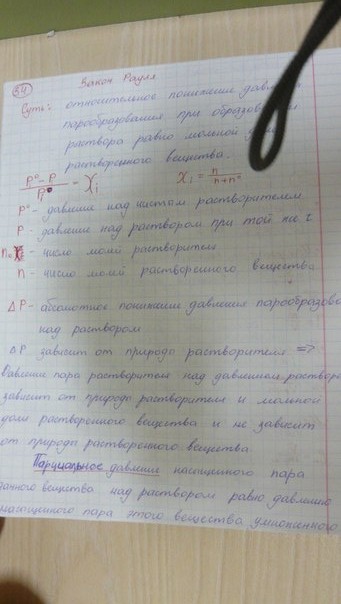 34
Закон Рауля
Суть: относительное понижение давле
парообразования при образовании
раствора равно мольной
растворенного вещества.
P° - P / P° = Xi     Xi = n / n + n°
P° - давление над чистым растворителем
P - давление над раствором при той же t
n° - число молей растворителя
n - число молей растворенного вещества
ΔP - абсолютное понижение давления парообразова
над раствором
ΔP зависит от природы растворителя =>
Давление пара растворителя над давлением раствора
зависит от природы растворителя и мольной
доли растворенного вещества и не зависит
от природы растворенного вещества.
Парциальное давление насыщенного пара
данного вещества над раствором равно давлению
насыщенного пара этого вещества умноженного